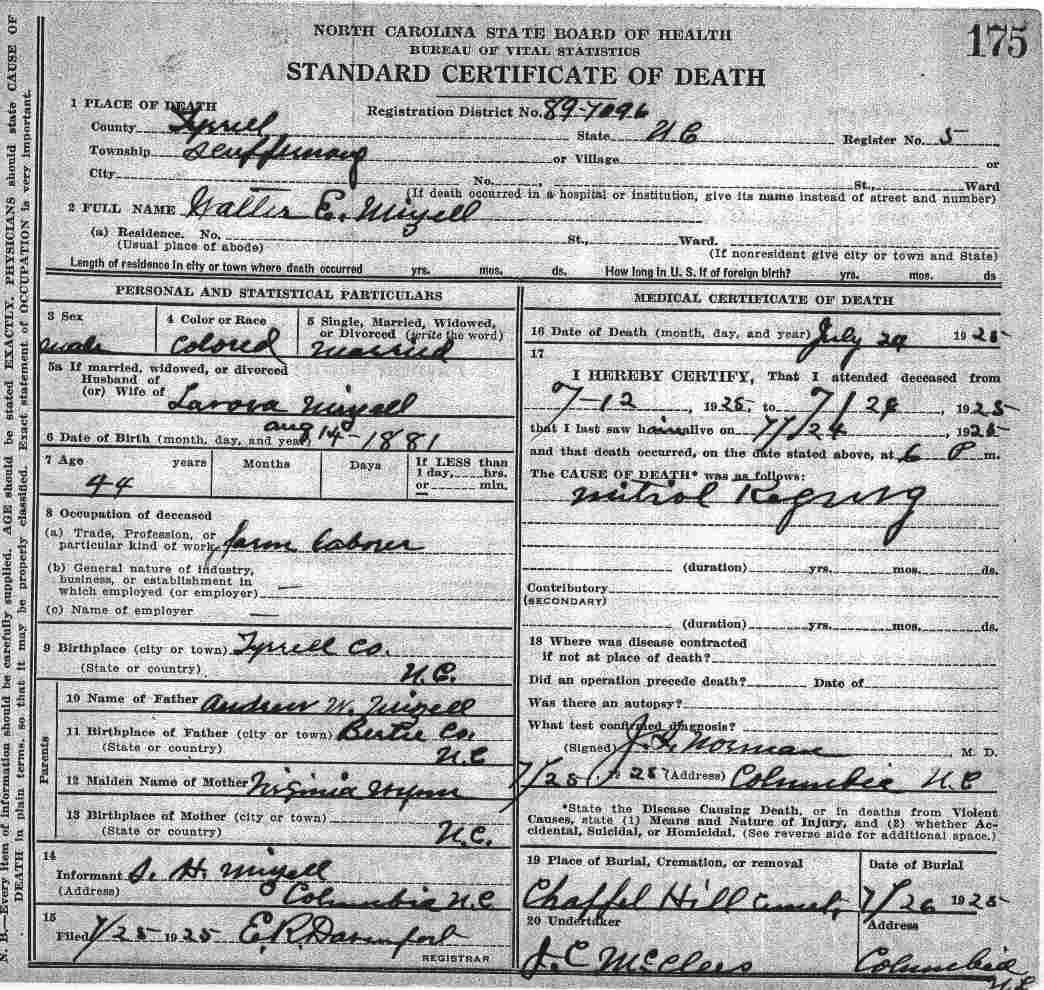 175
NORTH CAROLINA STATE BOARD OF HEALTH
BUREAU OF VITAL STATISTICS
STANDARD CERTIFICATE OF DEATH
1 PLACE OF DEATH
Registration District No. 89-7096
County Tyrrell State N C Register No. 5
Township Scuppernong or Village or
City No. , St., Ward
(If death occurred in a hospital or institution, give its name instead of street and number)
2 FULL NAME Walter E. Mizell
(a) Residence. No. St., Ward.
(Usual place of abode) (If nonresident give city or town and State)
Length of residence in city or town where death occurred yrs. mos. ds. How long in U. S. if of foreign birth? yrs. mos. ds
PERSONAL AND STATISTICAL PARTICULARS
3 Sex
male
4 Color or Race
Colored
5 Single, Married, Widowed,
or Divorced (write the word)
married
5a If married, widowed, or divorced
Husband of
(or) Wife of Mizell
6 Date of Birth (month, day, and year) Aug 14-1881
7 Age years Months Days If LESS than
1 day, hrs.
or min.
44
8 Occupation of deceased
(a) Trade, Profession, or
particular kind of work farm laborer
(b) General nature of industry,
business, or establishment in
which employed (or employer) —
(c) Name of employer —
9 Birthplace (city or town) Tyrrell Co.
(State or country) N.C.
Parents
10 Name of Father Andrew W. Mizell
11 Birthplace of Father (city or town) Bertie Co.
(State or country) N.C
12 Maiden Name of Mother Virginia Wynn
13 Birthplace of Mother (city or town)
(State or country) N.C.
14
Informant S. H. Mizell
(Address) Columbia N.C
15
Filed 7/25 1925 E.R. Davenport
REGISTRAR
MEDICAL CERTIFICATE OF DEATH
16 Date of Death (month, day, and year) July 1925
17
I HEREBY CERTIFY, That I attended deceased from
7-12, 1925, to 7/, 1925
that I last saw h alive on 7/24, 1925
and that death occurred, on the date stated above, at 6 P m.
The CAUSE OF DEATH* was as follows:
mitrol Regurg
(duration) yrs. mos. ds.
Contributory
(SECONDARY)
(duration) yrs. mos. ds.
18 Where was disease contracted
if not at place of death?
Did an operation precede death? Date of
Was there an autopsy?
What test confirmed diagnosis?
(Signed) Norman M. D.
7/25, 1925 (Address) Columbia N.C
*State the Disease Causing Death, or in deaths from Violent
Causes, state (1) Means and Nature of Injury, and (2) whether Ac-
cidental, Suicidal, or Homicidal. (See reverse side for additional space.)
19 Place of Burial, Cremation, or removal Date of Burial
Chappel Hill 7/26 1925
20 Undertaker Address
J. C McClees Columbia
N.C
N. B.—Every item of information should be carefully supplied. AGE should be stated EXACTLY. PHYSICIANS should state CAUSE OF
DEATH in plain terms, so that it may be properly classified. Exact statement of OCCUPATION is very important.